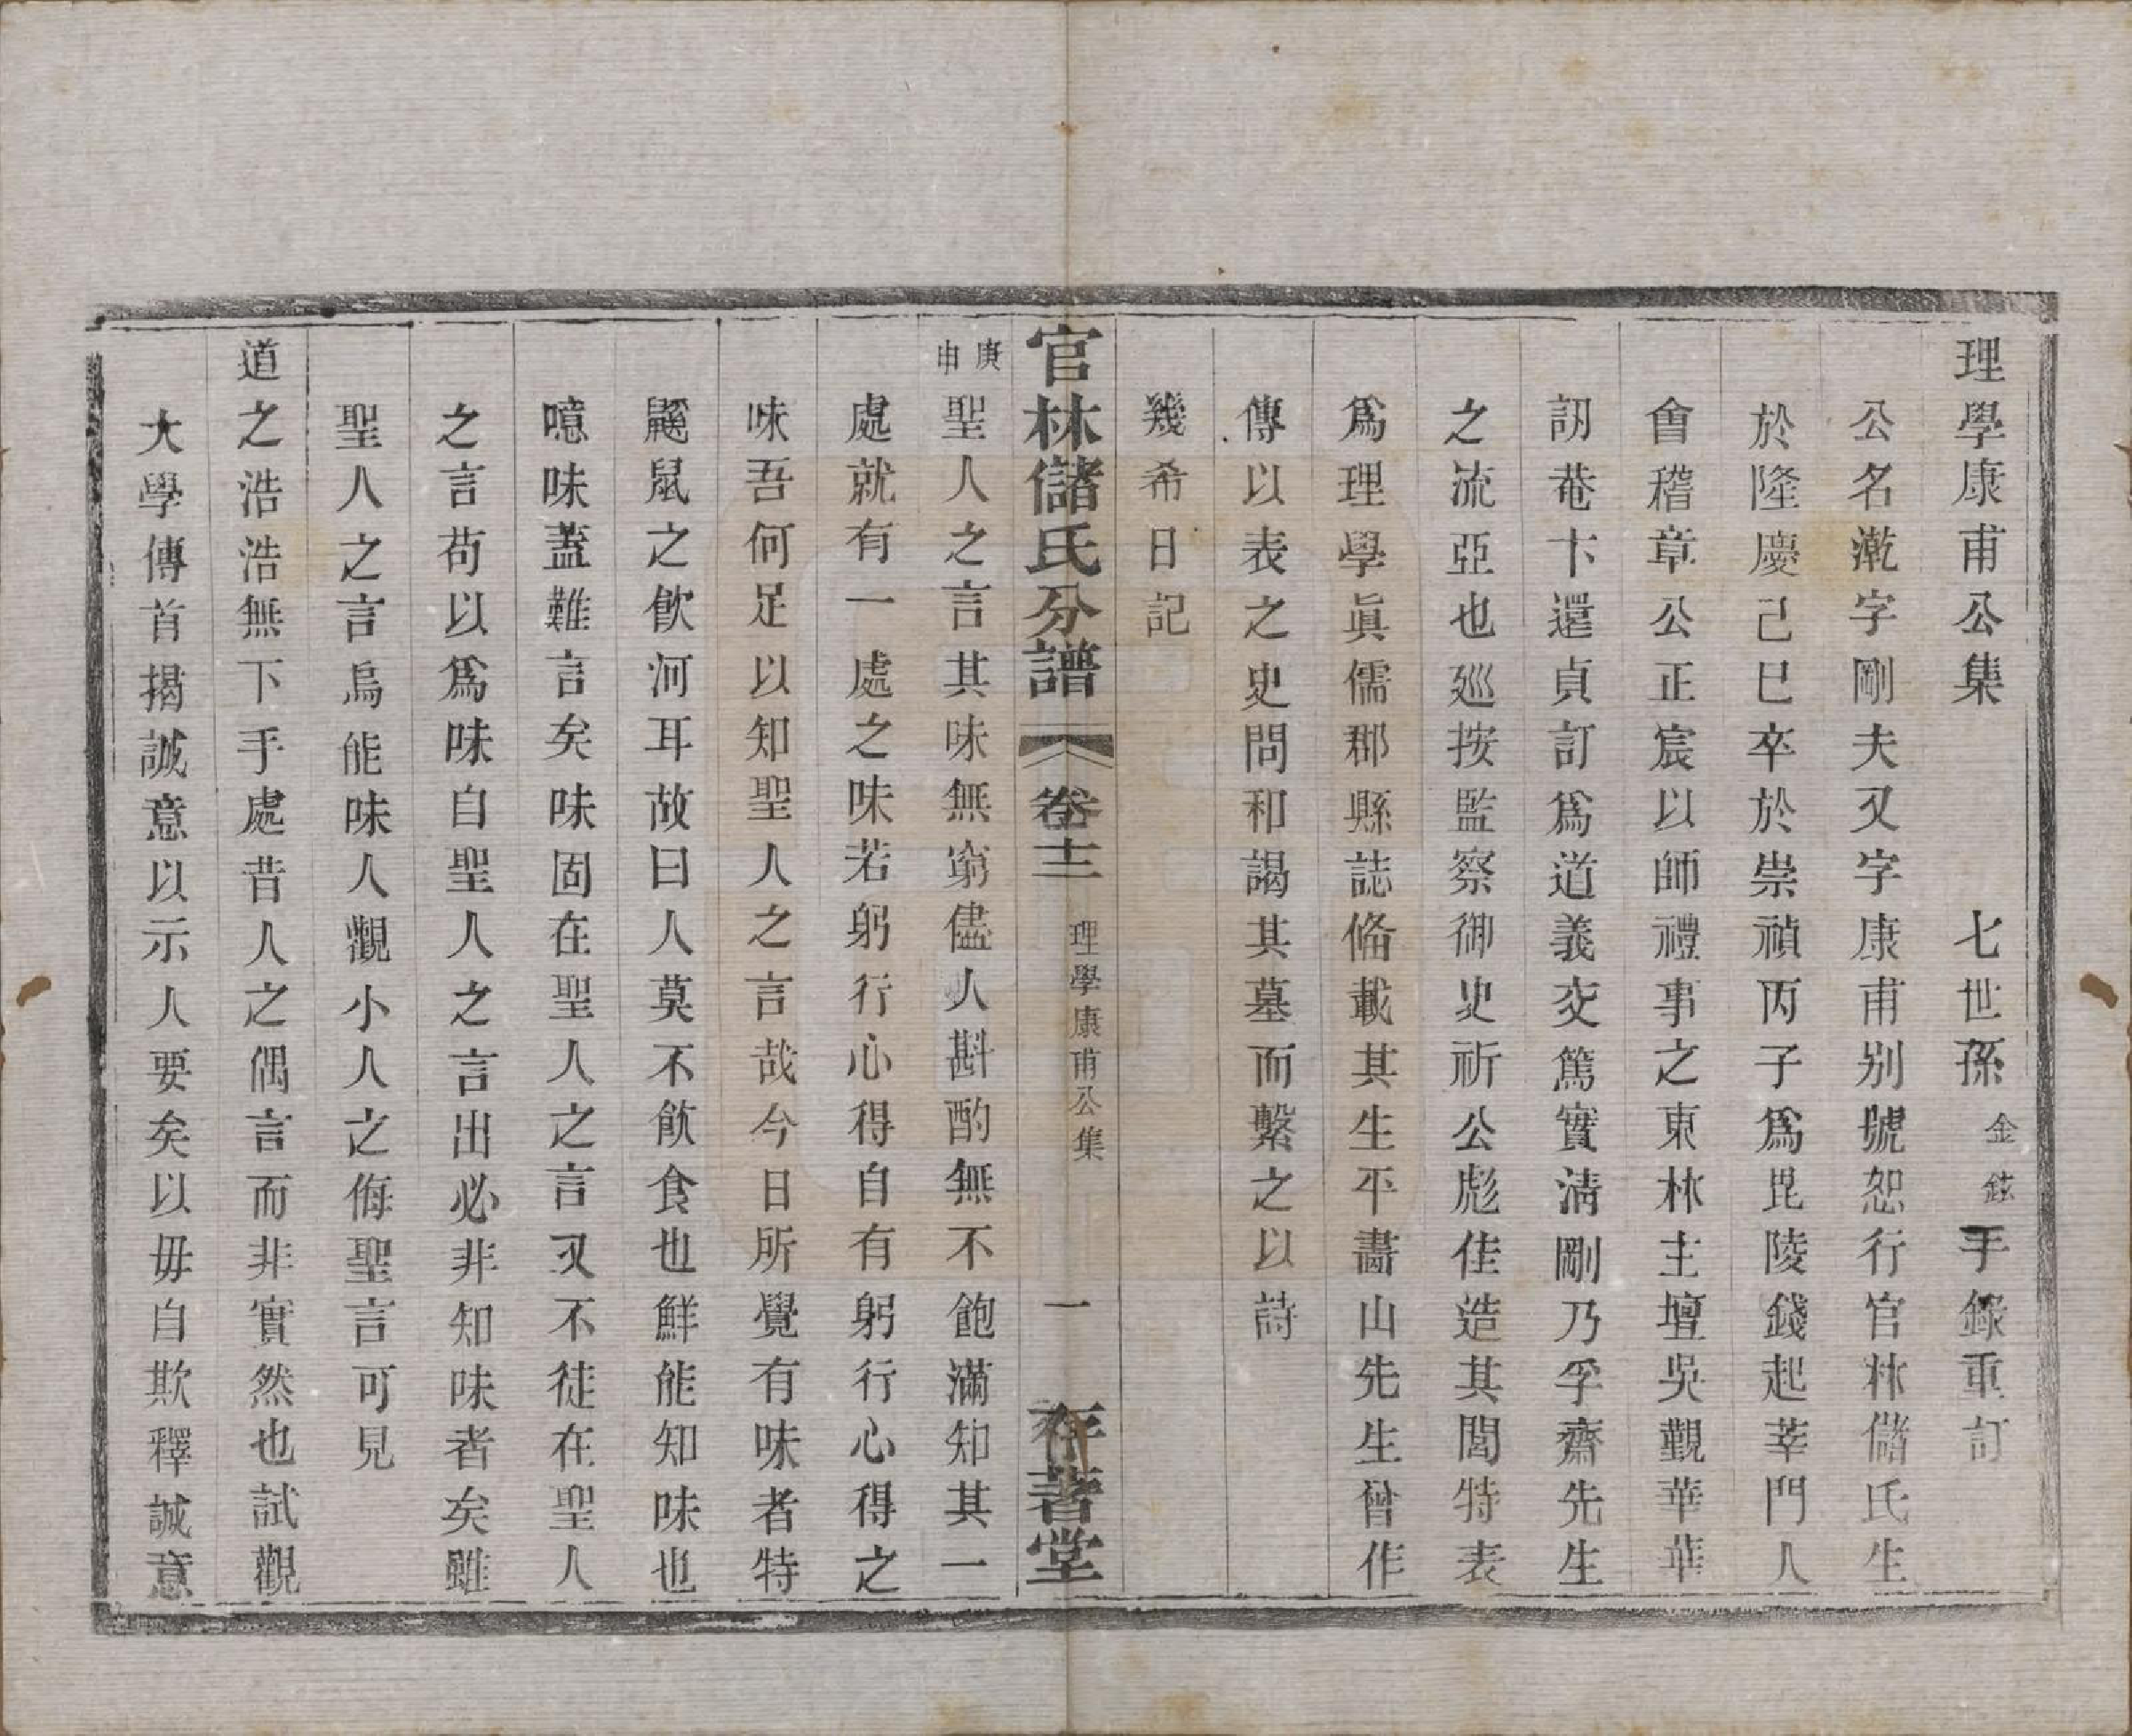 理學康甫公集　七世孫金鉉手錄重訂
公名漧字剛夫又字康甫别號恕行官林儲氏生
於隆慶己巳卒於崇禎丙子爲毘陵錢起莘門人
會稽章公正宸以師禮事之東林主壇吳覲華華
訒菴卞還貞訂爲道義交篤實淸剛乃孚齋先生
之流亞也廵按監察御史祈公彪佳造其閭特表
爲理學眞儒郡縣誌俻載其生平畵山先生曾作
傳以表之史問和謁其墓而繫之以詩
幾希日記
官林儲氏分譜　卷十二　理學康甫公集　一　存著堂
庚申聖人之言其味無窮儘人斟酌無不飽滿知其一
處就有一處之味若躬行心得自有躬行心得之
味吾何足以知聖人之言哉今日所覺有味者特
鼴鼠之飮河耳故曰人莫不飮食也鮮能知味也
噫味蓋難言矣味固在聖人之言又不徒在聖人
之言茍以爲味自聖人之言出必非知味者矣雖
聖人之言烏能味人觀小人之侮聖言可見
道之浩浩無下手處昔人之偶言而非實然也試觀
大學傳首揭誠意以示人要矣以毋自欺釋誠意